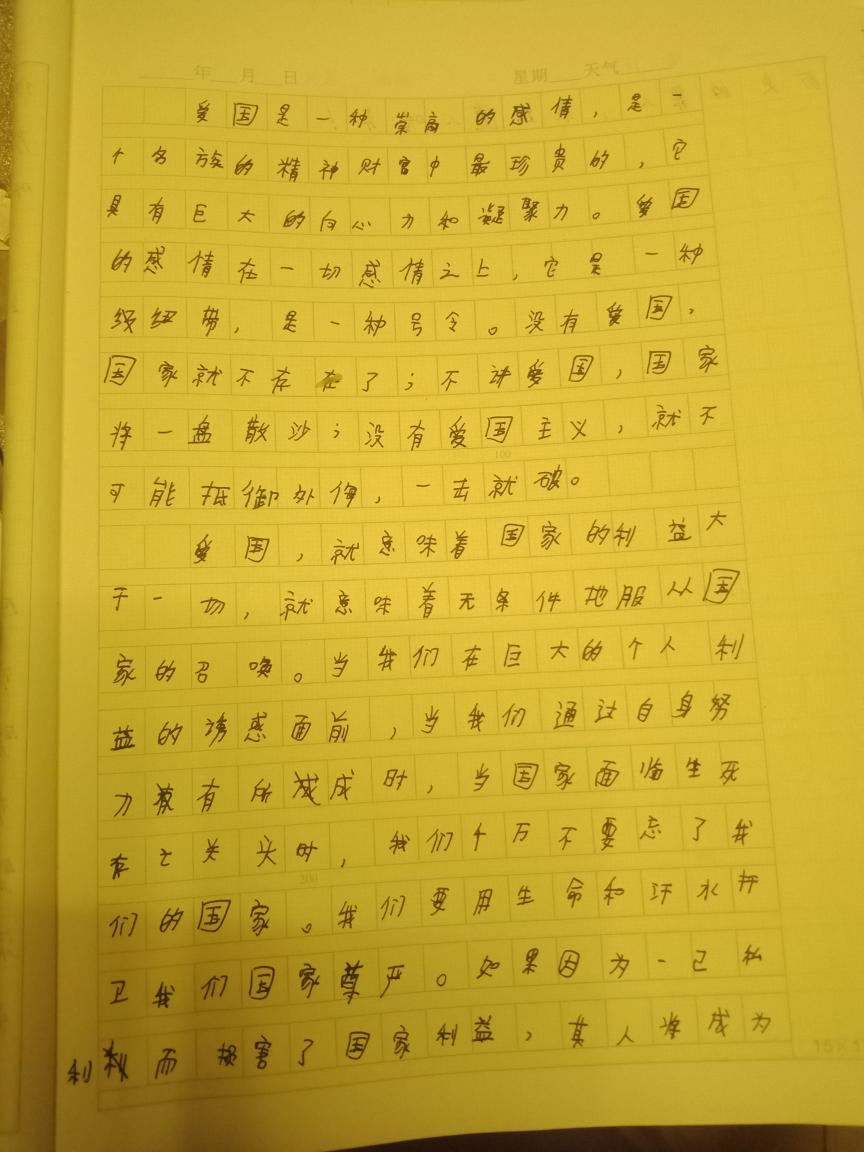 年 月 日 星期 天气
爱国是一种崇高的感情，是一
个名族的精神财富中最珍贵的，它
具有巨大的向心力和凝聚力。爱国
的感情在一切感情之上，它是一种
级纽带，是一种号令。没有爱国，
国家就不存在了；不讲爱国，国家
将一盘散沙；没有爱国主义，就不
100
可能抵御外侮，一击就破。
爱国，就意味着国家的利益大
于一切，就意味着无条件地服从国
家的召唤。当我们在巨大的个人利
益的诱惑面前，当我们通过自身努
力有所成时，当国家面临生死
存亡关头时，我们千万不要忘了我
200
们的国家。我们要用生命和汗水捍
卫我们国家尊严。如果因为一己私
利而损害了国家利益，其人将成为